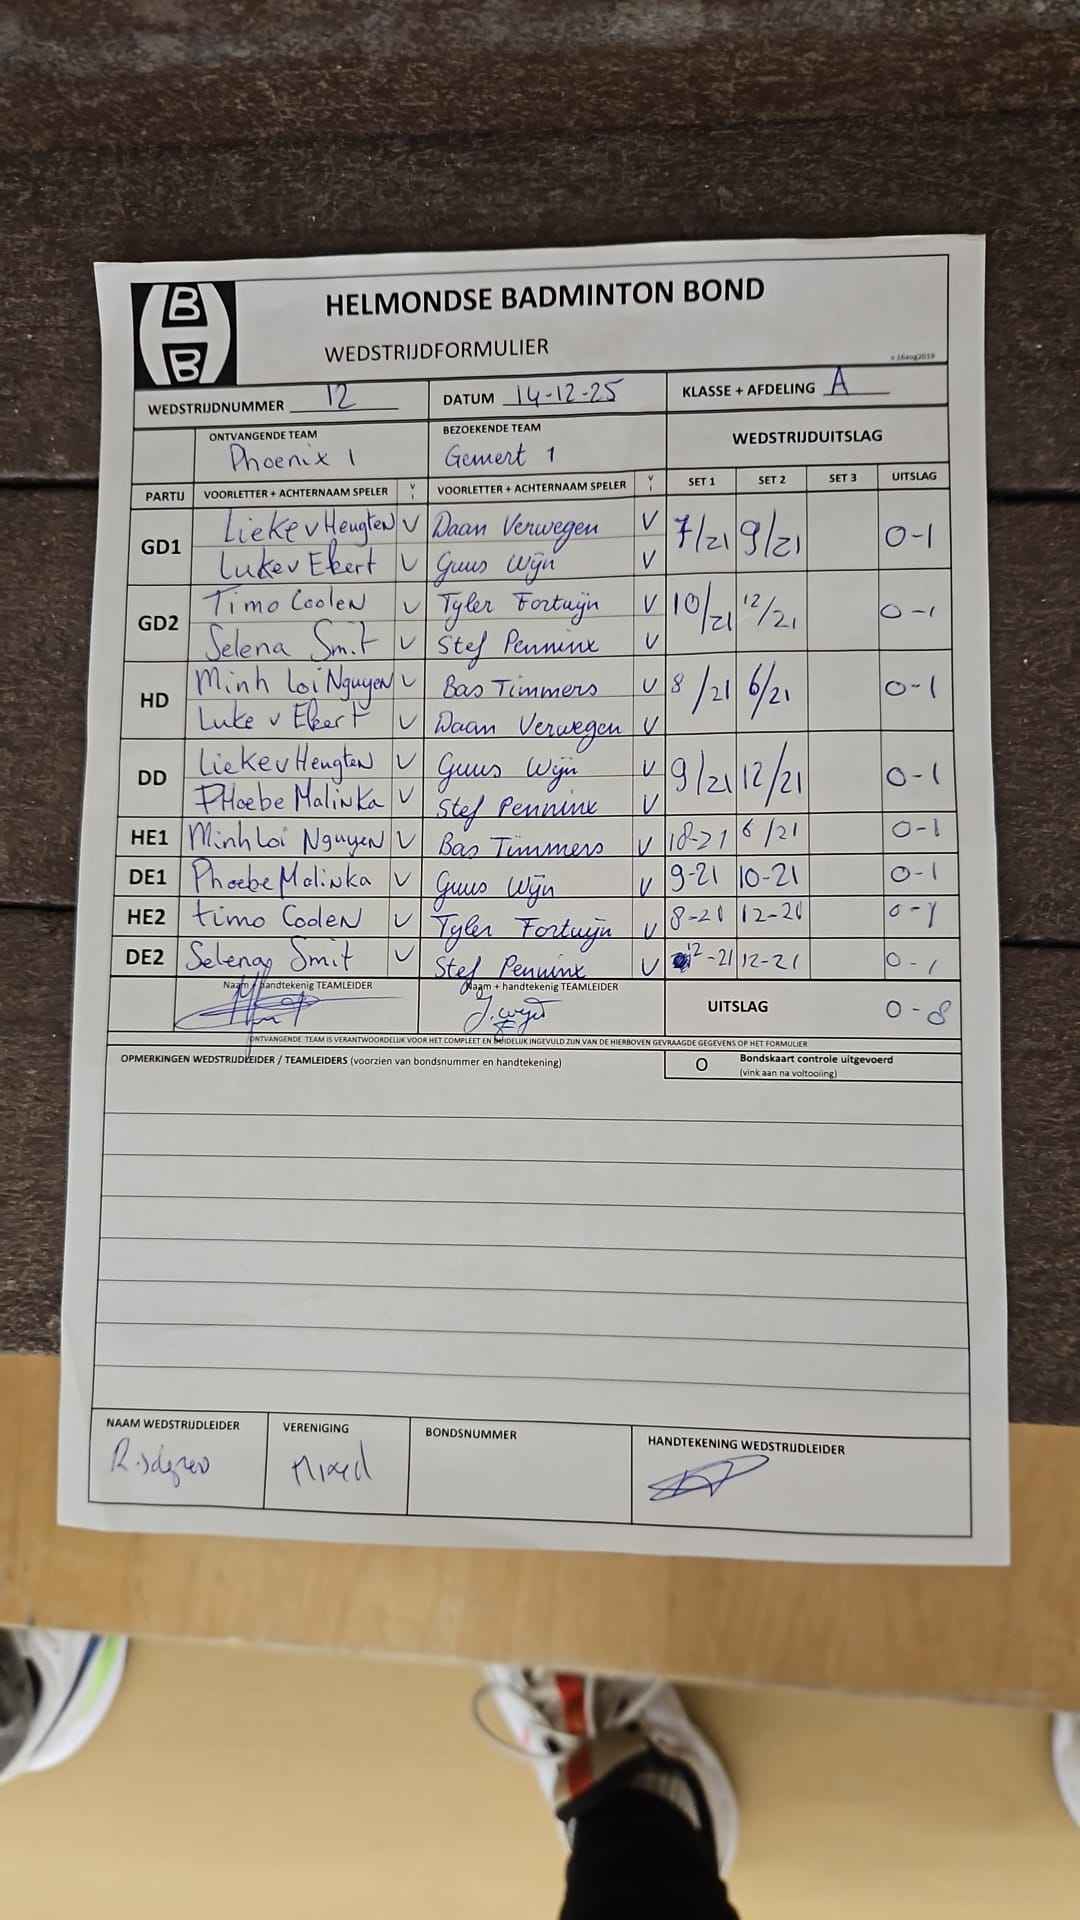 B
B
HELMONDSE BADMINTON BOND
WEDSTRIJDFORMULIER
v.16aug2019
WEDSTRIJDNUMMER 12 DATUM 14-12-25 KLASSE + AFDELING A
ONTVANGENDE TEAM BEZOEKENDE TEAM WEDSTRIJDUITSLAG
Phoenix 1 Gemert 1
PARTIJ VOORLETTER + ACHTERNAAM SPELER V VOORLETTER + ACHTERNAAM SPELER V SET 1 SET 2 SET 3 UITSLAG
GD1 Lieke v Heugten V Daan Verwegen V 7/21 9/21 0-1
Luke v Ekert V Guus Wijn V
GD2 Timo Coolen V Tyler Fortuijn V 10/21 12/21 0-1
Selena Smit V Stef Penninx V
HD Minh Loi Nguyen V Bas Timmers V 8/21 6/21 0-1
Luke v Ekert V Daan Verwegen V
DD Lieke v Heugten V Guus Wijn V 9/21 12/21 0-1
PHoebe Malinka V Stef Penninx V
HE1 Minh Loi Nguyen V Bas Timmers V 18-21 6/21 0-1
DE1 Phoebe Malinka V Guus Wijn V 9-21 10-21 0-1
HE2 timo Coolen V Tyler Fortuijn V 0-1
DE2 Selena Smit V Stef Penninx V 12-21 12-21 0-1
Naam + handtekenig TEAMLEIDER Naam + handtekenig TEAMLEIDER UITSLAG 0-8
ONTVANGENDE TEAM IS VERANTWOORDELIJK VOOR HET COMPLEET EN DUIDELIJK INGEVULD ZIJN VAN DE HIERBOVEN GEVRAAGDE GEGEVENS OP HET FORMULIER
OPMERKINGEN WEDSTRIJDLEIDER / TEAMLEIDERS (voorzien van bondsnummer en handtekening) O Bondskaart controle uitgevoerd
(vink aan na voltooiing)
NAAM WEDSTRIJDLEIDER VERENIGING BONDSNUMMER HANDTEKENING WEDSTRIJDLEIDER
Mixed